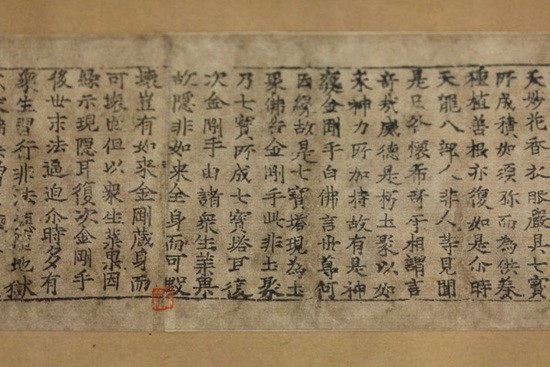 天妙花香衣服嚴具七寶
所成積如須弥而為供養
種植善根亦復如是尒時
天龍八部人非人等見聞
是已各懷希奇互相謂言
奇哉威德是朽土聚以如
来神力所加持故有是神
變金剛手白佛言世尊何
因緣故是七寶塔現為土
聚佛告金剛手此非土聚
乃七寶所成七寶塔耳復
次金剛手由諸衆生業果
故隱非如来全身而可毀
壞豈有如来金剛藏身而
可壞也但以衆生業果因
緣示現隱耳復次金剛手
後世末法逼迫尒時多有
衆生習行非法應墮地獄